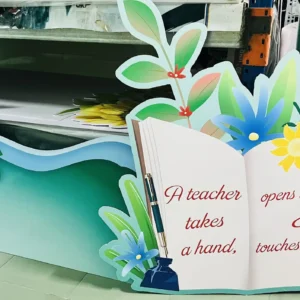 A teacher
takes
a hand,
opens
touches